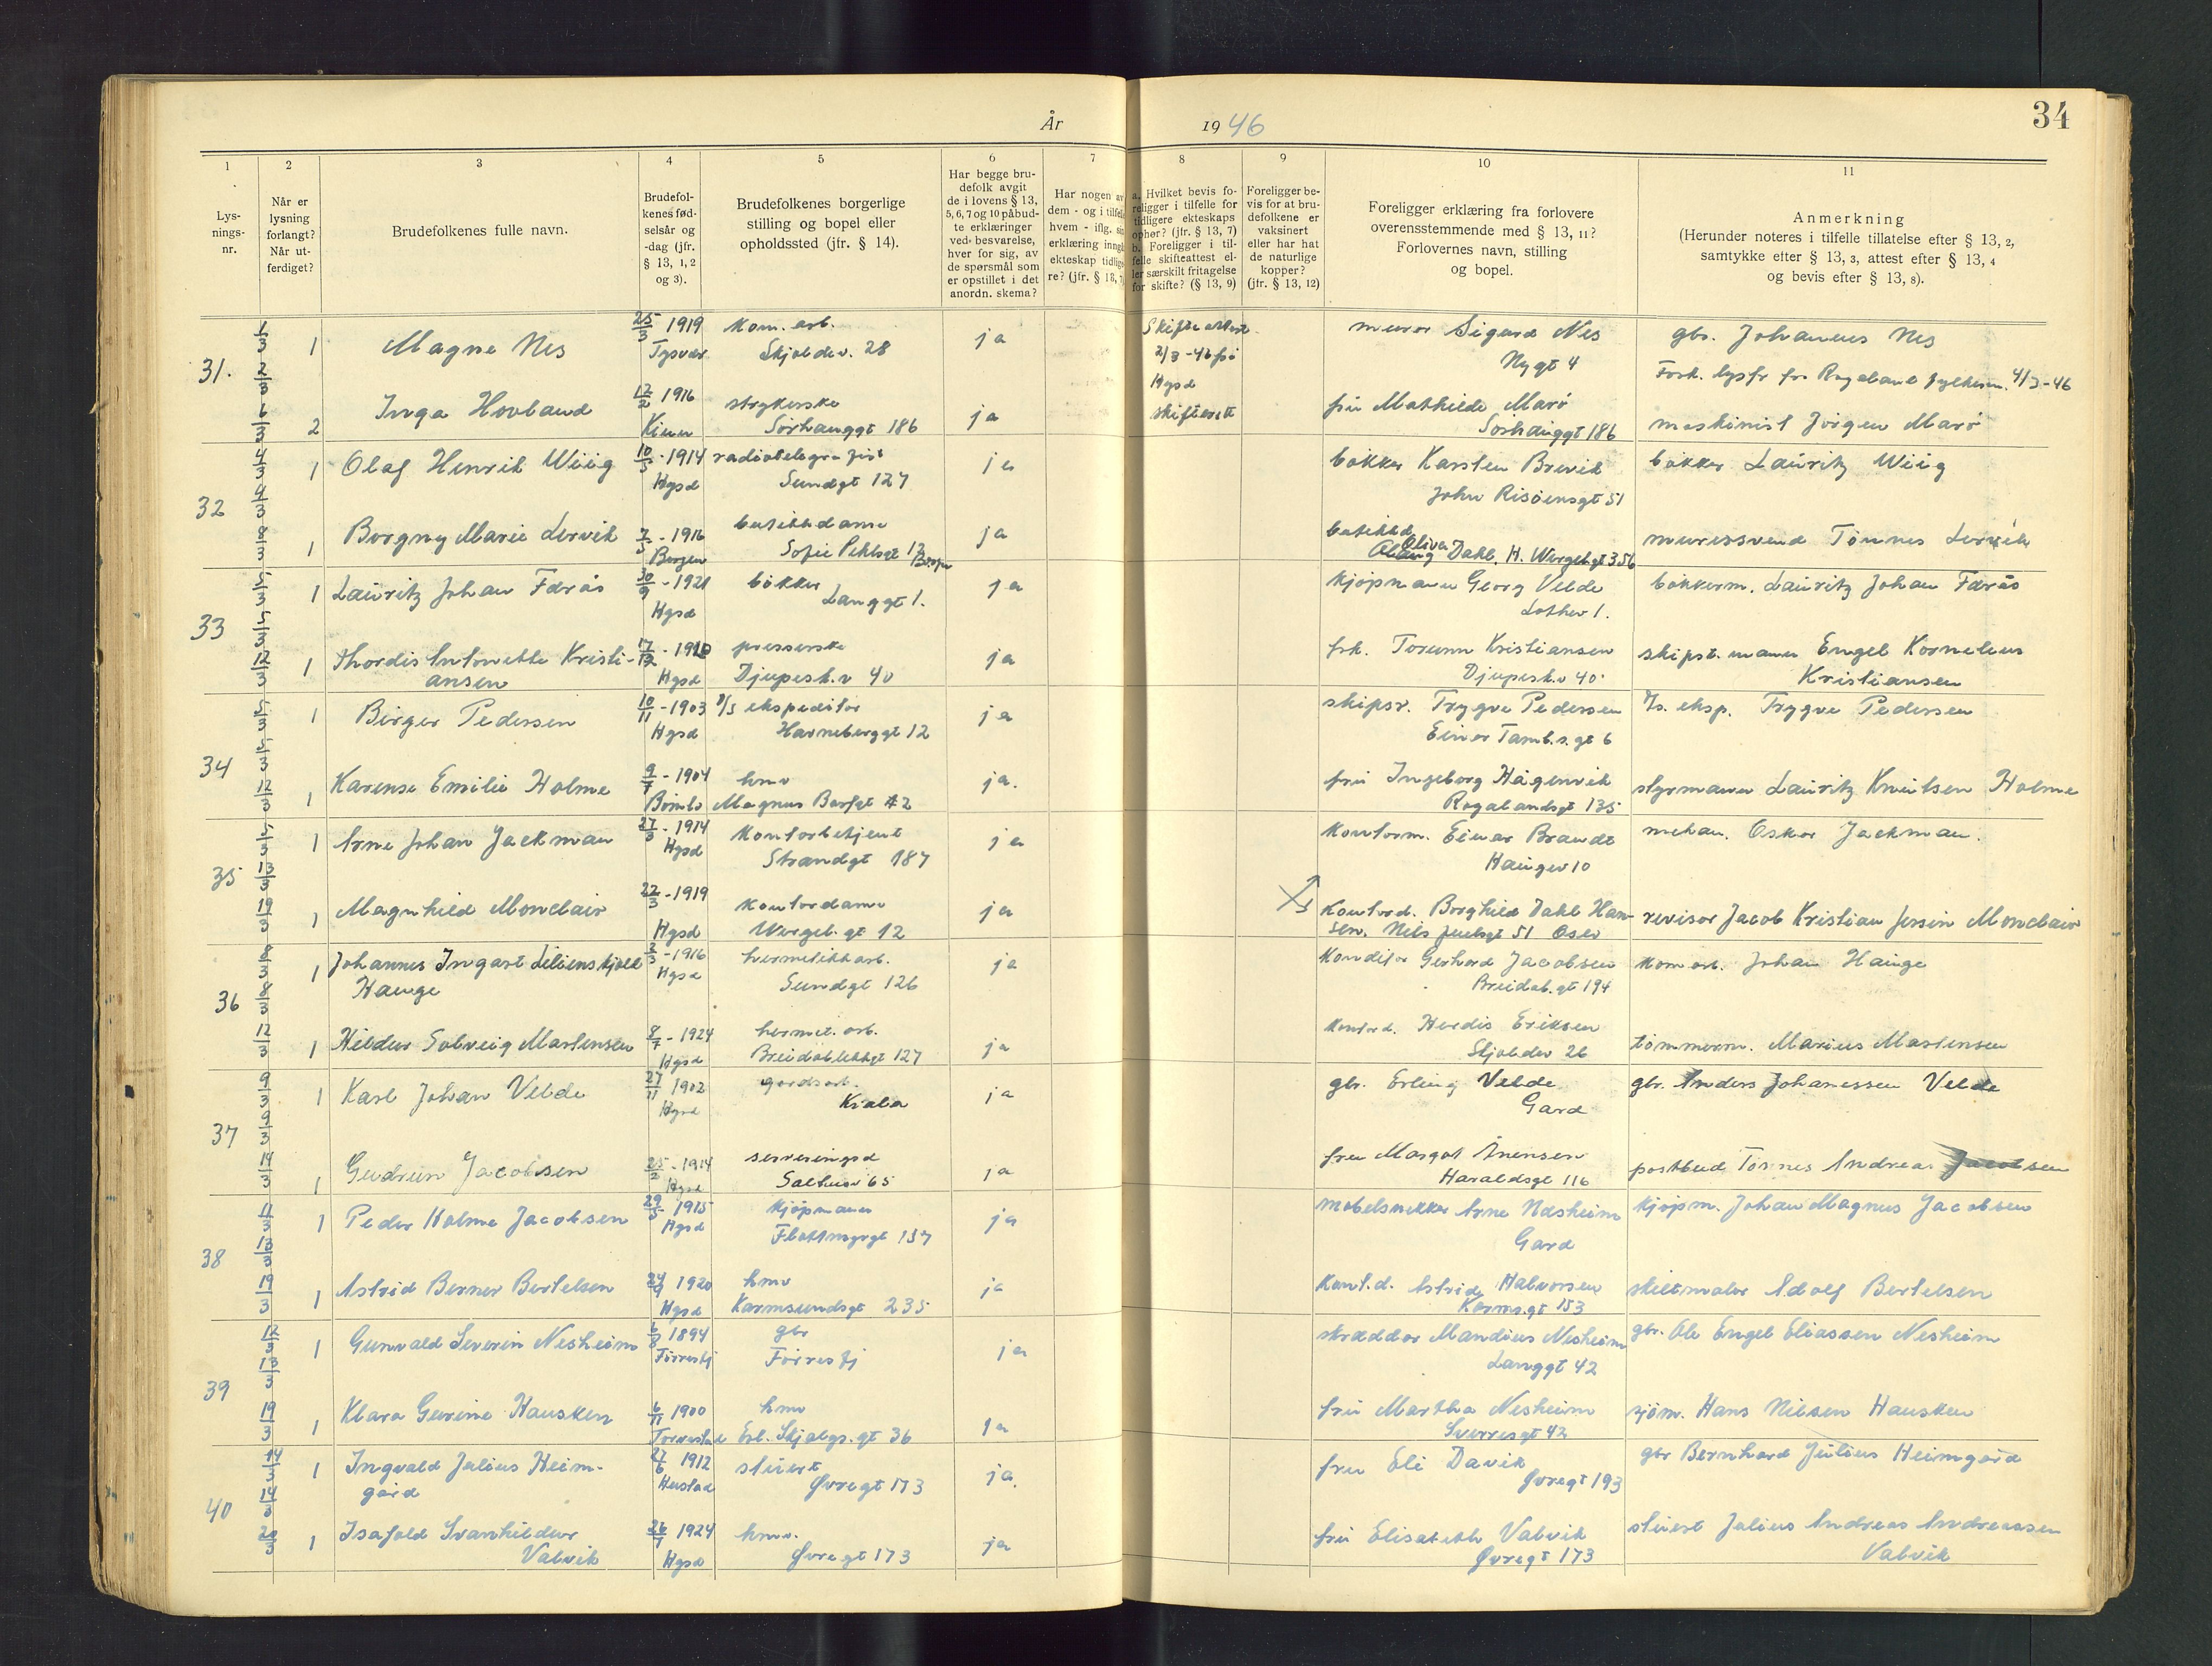 34
År 1946
1 2 3 4 5 6 7 8 9 10 11
Lys-
nings-
nr.
Når er
lysning
forlangt?
Når ut-
ferdiget?
Brudefolkenes fulle navn.
Brudefol-
kenes fød-
selsår og
-dag (jfr.
§ 13, 1, 2
og 3).
Brudefolkenes borgerlige
stilling og bopel eller
opholdssted (jfr. § 14).
Har begge bru-
defolk avgit
de i lovens § 13,
5, 6, 7 og 10 påbud-
te erklæringer
ved besvarelse,
hver for sig, av
de spørsmål som
er opstillet i det
anordn. skema?
Har nogen av
dem - og i tilfelle
hvem - iflg. sin
erklæring inngått
ekteskap tidlige-
re? (jfr. § 13, 7)
a. Hvilket bevis fo-
religger i tilfelle for
tidligere ekteskaps
ophør? (jfr. § 13, 7)
b. Foreligger i til-
felle skifteattest el-
ler særskilt fritagelse
for skifte? (§ 13, 9)
Foreligger be-
vis for at bru-
defolkene er
vaksinert
eller har hat
de naturlige
kopper?
(jfr. § 13, 12)
Foreligger erklæring fra forlovere
overensstemmende med § 13, 11?
Forlovernes navn, stilling
og bopel.
Anmerkning
(Herunder noteres i tilfelle tillatelse efter § 13, 2,
samtykke efter § 13, 3, attest efter § 13, 4
og bevis efter § 13, 8).
31.
1 Magne Nes 25/3 1919 Tysvær kom. arb. Skjoldev. 28 ja Skifteattest 2/3-46 fra Hgsd skifterett murer Sigurd Nes Nygt 4 gbr. Johannes Nes
Forh. lysfr fra Rogaland fylkesm. 4/3-46
2 Inga Hovland 12/2 1916 strykerske Sørhauggt 186 ja fru Mathilde Marø Sørhauggt 186 maskinist Jörgen Marø
32
1 Olaf Henrik Wiig 10/5-1914 Hgsd radiotelegrafist Sundgt 127 ja bøkker Karsten Brevik John Risøensgt 51 bøkker Lauritz Wiig
1 Borgny Marie Lervik 7/5-1916 Bergen butikkdame Sofie Pehlsgt 12 Bergen ja butikkd Oliva Dahl. H. Wergel.gt 356 murersvend Tönnes Lervik
33
1 Lauritz Johan Færås 30/9-1921 Hgsd bøkker Langgt 1. ja kjøpmann Georg Velde Lothev 1. bøkkerm. Lauritz Johan Færås
1 Thordis Antonette Kristi-
ansen 17/12 Hgsd presserske Djupesk.v 40 ja frk. Torunn Kristiansen Djupesk.v 40. skipst.mann Engel Kornelius
Kristiansen
34
1 Birger Pedersen 10/11-1903 Hgsd D/S ekspeditør Havneberggt 12 ja skipsr. Trygve Pedersen Einar Tamb.s.gt 6 D/s. eksp. Trygve Pedersen
1 Karense Emilie Holme 9/7-1904 Bømlo hmv Magnus Barfgt 42 ja. fru Ingeborg Hagenvik Rogalandsgt 135 styrmann Lauritz Knutsen Holme
35
1 Arne Johan Jackman 27/3-1914 Hgsd kontorbetjent Strandgt 187 ja kontorm. Einar Brandt Haugev 10 mekan. Oskar Jackman.
1 Magnhild Monclair 22/3-1919 Hgsd kontordame Wergel.gt 12 ja kontord. Borghild Dahl Han-
sen. Nils Juelsgt 51 Oslo revisor Jacob Kristian Jersin Monclair
36
1 Johannes Ingart Lilienskjold
Hauge 2/3-1916 Hgsd hermetikkarb. Sundgt 126 ja Konditor Gerhard Jacobsen Breidab.gt 194 kom arb. Johan Hauge
1 Hildur Solveig Martensen 8/7-1924 Hgsd hermet. arb. Breidablikkgt 127 ja kontord. Herdis Eriksen Skjoldev 26 tømmerm. Marius Martensen
37
1 Karl Johan Velde 27/11 1902 Hgsd gardsarb. Kvala ja gbr. Erling Velde Gard gbr. Anders Johanessen Velde
1 Gudrun Jacobsen 25/2-1914 Hgsd serveringsd Saltuv 65 ja fru Margot Ånensen Haraldsgt 116 postbud Tørnes Andreas Jacobsen
38
1 Peder Holme Jacobsen 29/5 1915 Hgsd kjøpmann Flottmyrgt 157 ja møbelsnekker Arne Næsheim Gard kjøpm. Johan Magnus Jacobsen
1 Astrid Berner Bertelsen 24/9 1920 Hgsd hmv Karmsundsgt 235 ja kont.d. Astrid Halvorsen Karms.gt 153 skiltmaler Adolf Bertelsen
39
1 Gunvald Severin Nesheim 6/8 1894 Førresfj gbr Førresfj ja skrædder Mandius Nesheim Langgt 42 gbr. Ole Engel Eliassen Nesheim
1 Klara Gurine Hausken 6/11 1900 Torvestad hmv Erl. Skjalgs.gt 36 ja fru Martha Nesheim Sverresgt 42 sjøm. Hans Nilsen Hausken
40
1 Ingvald Julius Heim-
gård 27/6 1912 Hustad stuert Øvregt 173 ja. fru Eli Davik Øvregt 193 gbr Bernhard Julius Heimgård
1 Isafold Svanhildur
Valvik 26/7 1924 Hgsd hmv. Øvregt 173 ja fru Elisabeth Valvik Øvregt 173 stuert Julius Andreas Andreassen
Valvik